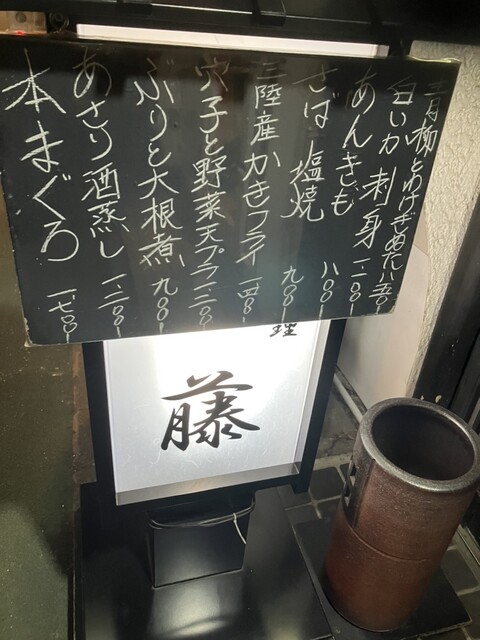 青柳とわけぎぬた 八五〇
白いか刺身 一、二〇〇
あんきも 八〇〇
さば塩焼 九〇〇
三陸産かきフライ 一、四〇〇
穴子と野菜天プラ 一、二〇〇
ぶりと大根煮 九〇〇
あさり酒蒸し 一、二〇〇
本まぐろ 一、七〇〇
理
藤